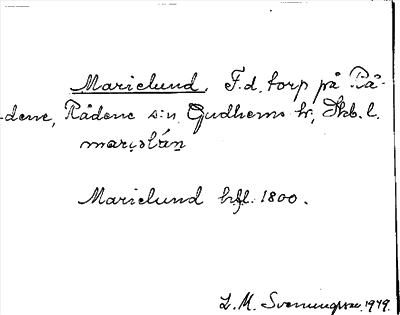 Marielund. F.d. torp på Rå-
dene, Rådene s:n Gudhems hr, Skb. l.
Marielund hfl. 1800.
L. M. Svenungsson 1949.